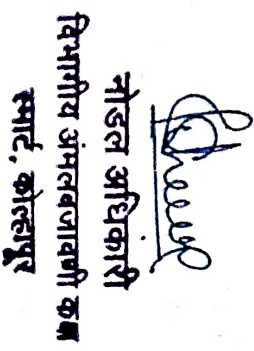 नोडल अधिकारी
विभागीय अंमलबजावणी कक्ष
स्मार्ट, कोल्हापूर